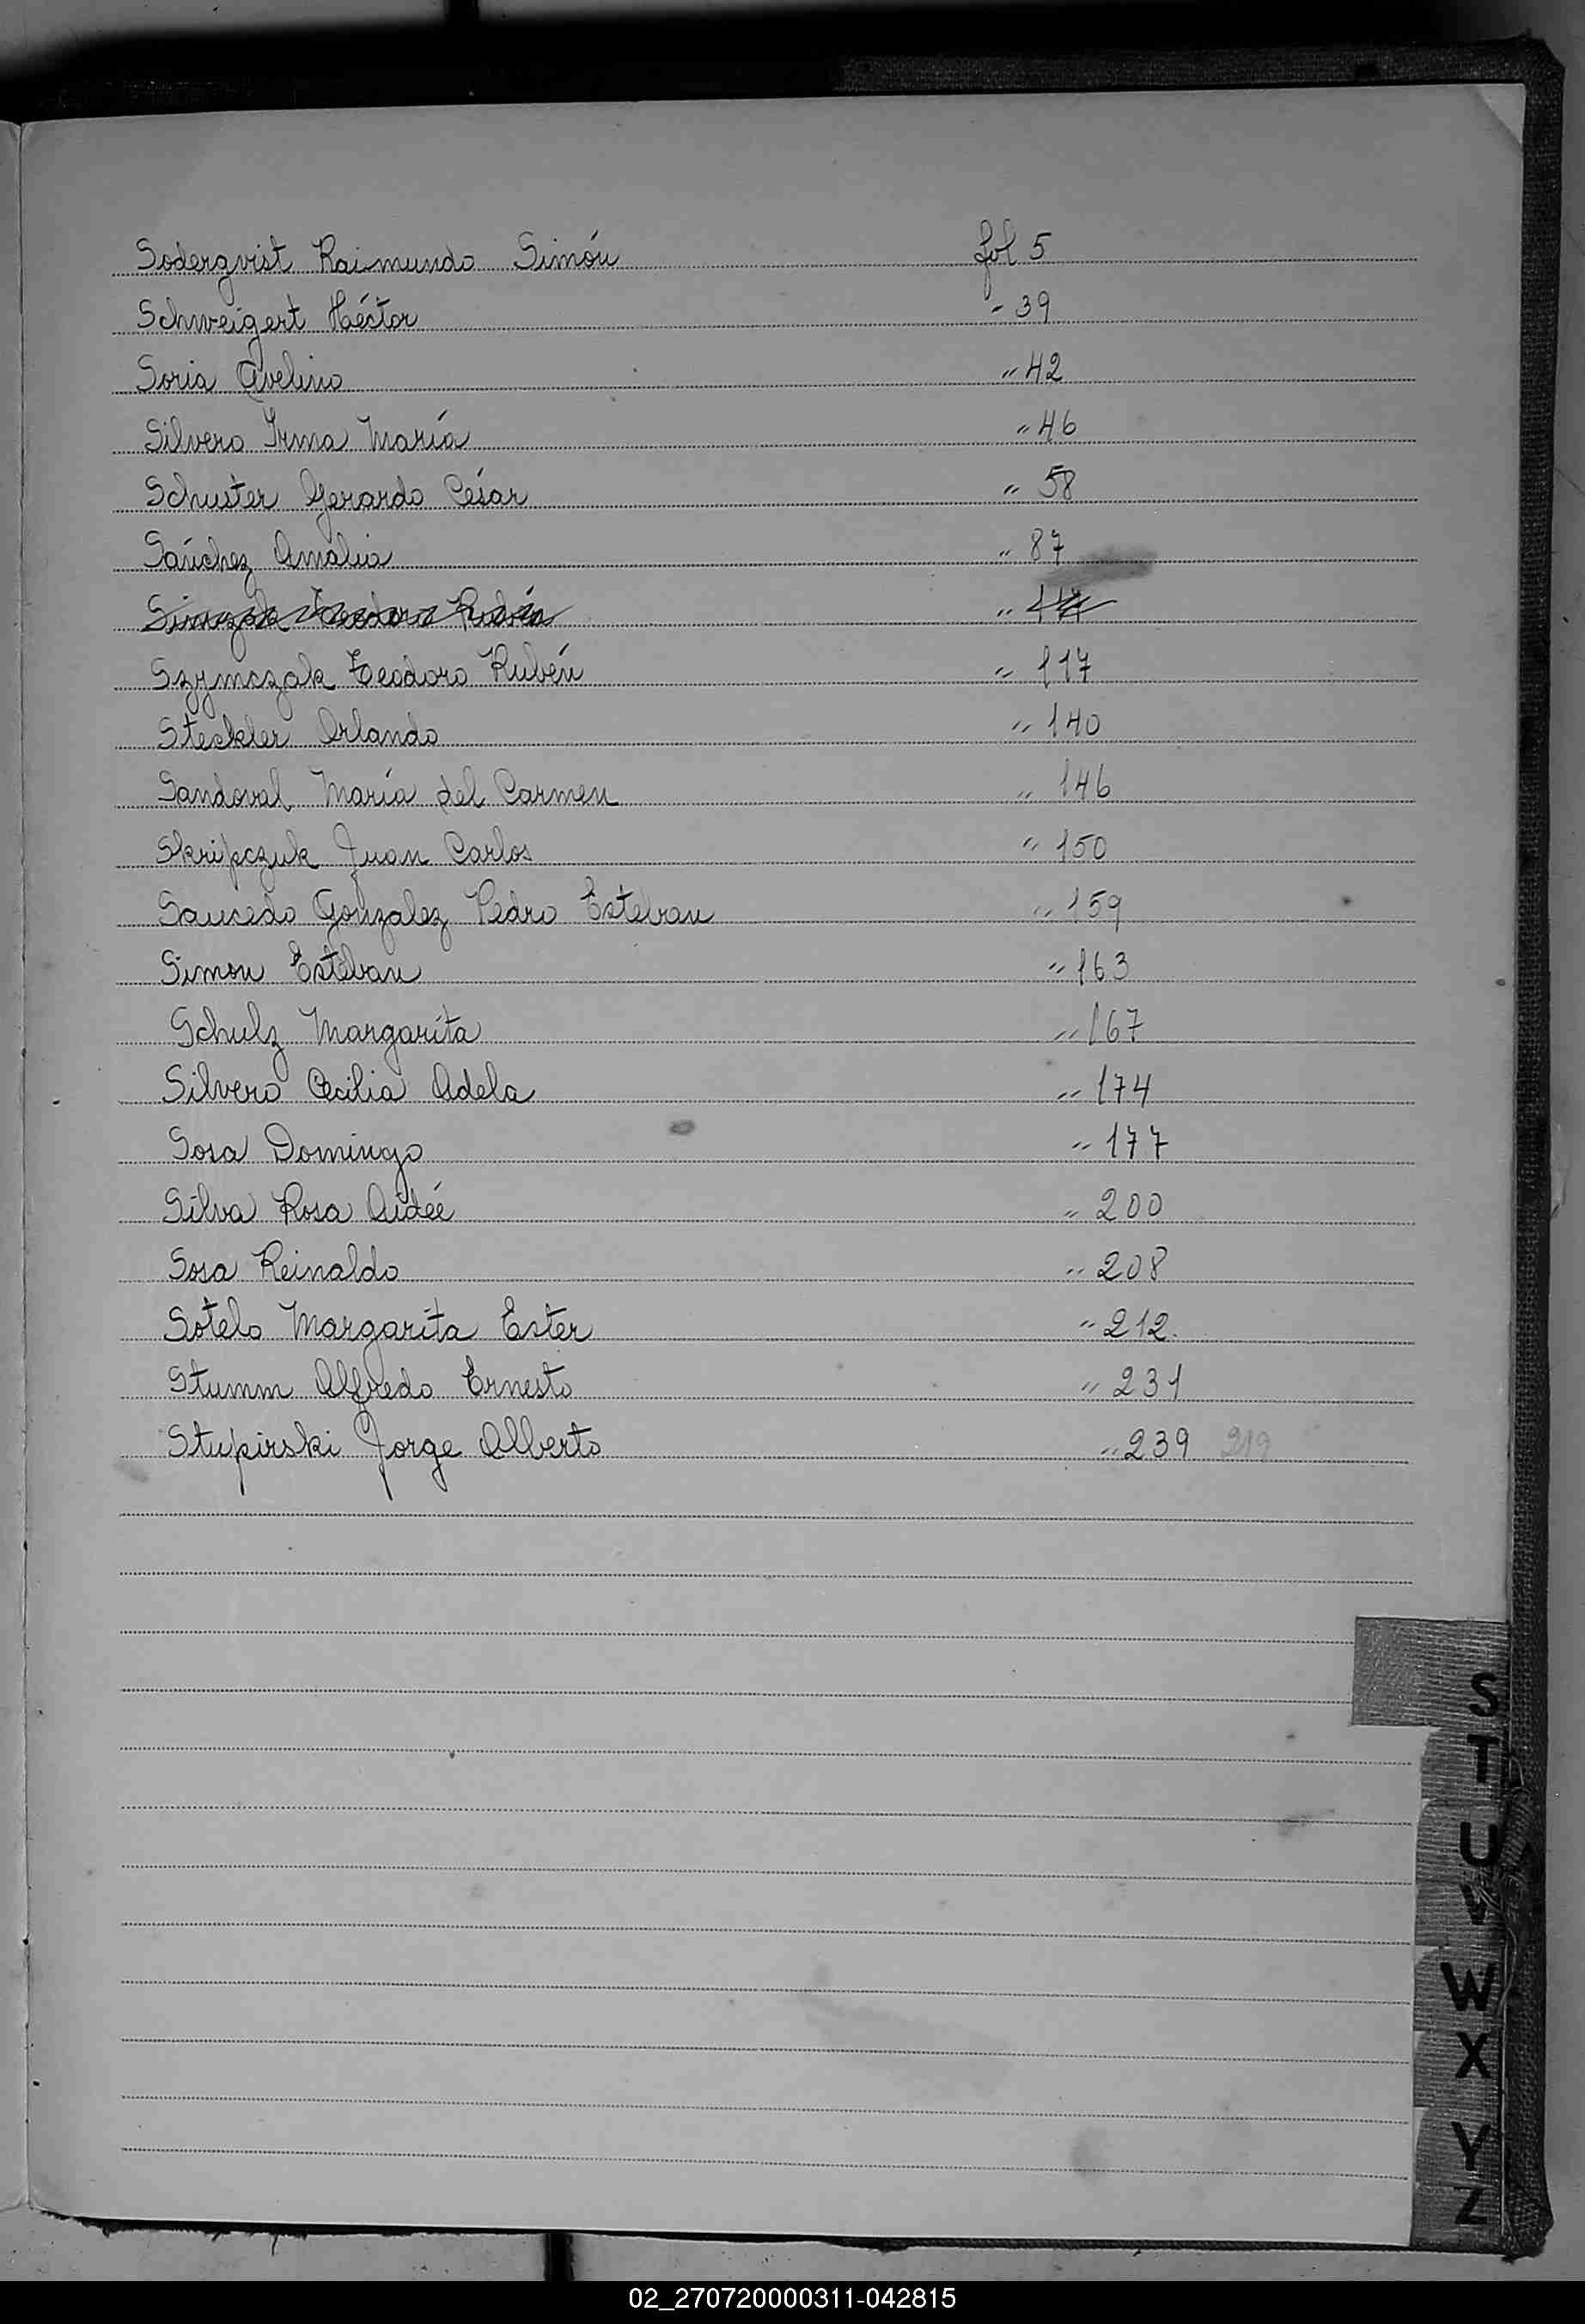 Soderqvist Raimundo Simón fol 5
Schweigert Héctor " 39
Soria Avelino " 42
Silvero Irma María " 46
Schuster Gerardo César " 58
Sánchez Amalia " 87
Teodoro Rubén "
Szymczak Teodoro Rubén " 117
Steckler Orlando " 140
Sandoval María del Carmen " 146
Skripczuk Juan Carlos " 150
Saucedo Gonzalez Pedro Esteban " 159
Simon Esteban " 163
Schulz Margarita " 167
Silvero Cecilia Adela " 174
Sosa Domingo " 177
Silva Rosa Aideé " 200
Sosa Reinaldo " 208
Sotelo Margarita Ester " 212.
Stumm Alfredo Ernesto " 231
Stupirski Jorge Alberto " 239 219
S
T
U
V
W
X
Y
Z
02_270720000311-042815